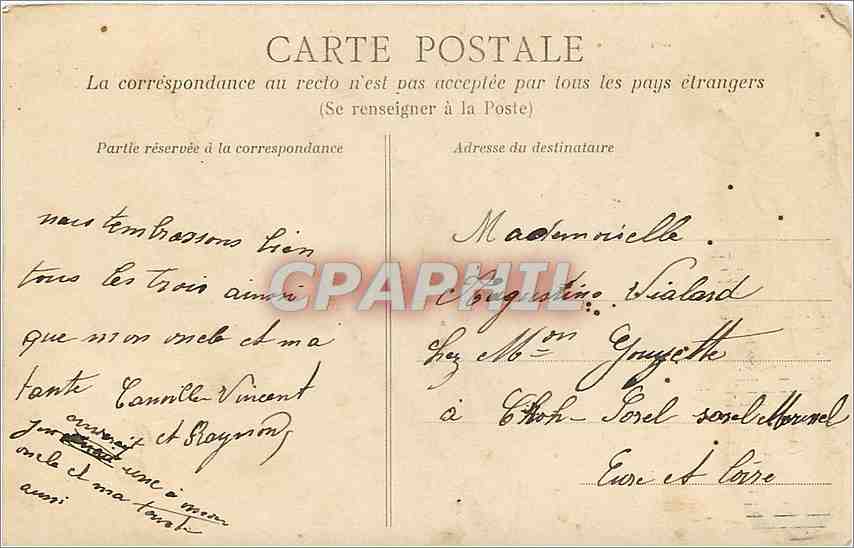 CARTE POSTALE
La correspondance au recto n'est pas acceptée par tous les pays étrangers
(Se renseigner à la Poste)
Partie réservée à la correspondance
nous t'embrassons bien
tous les trois ainsi
que mon oncle et ma
tante Camille Vincent
et Raymond
une à mon
oncle et ma tante
aussi
Adresse du destinataire
Mademoiselle
Augustine Vialard
chez Mon Gouzette
à Sorel
Eure et Loire
CPAPHIL